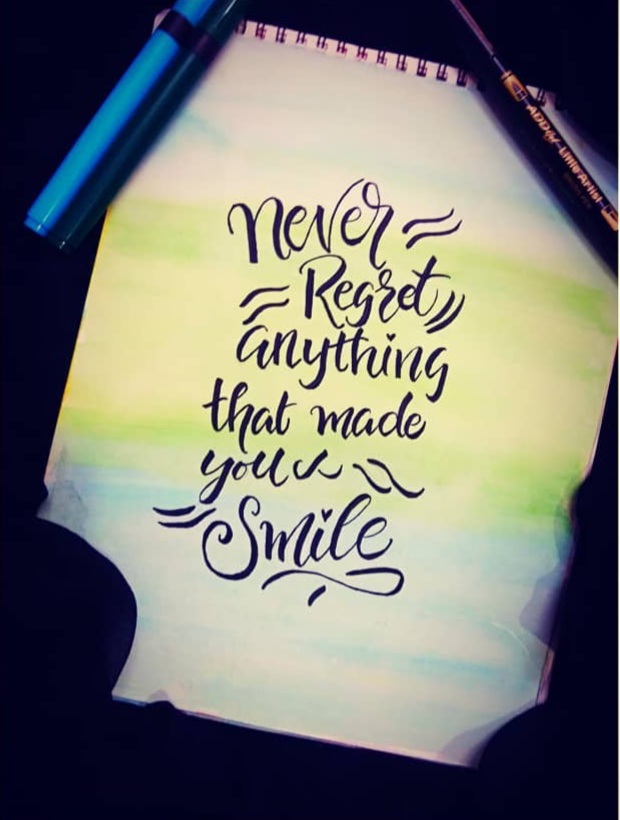 never
Regret
anything
that made
you
Smile
ADD Little Artist